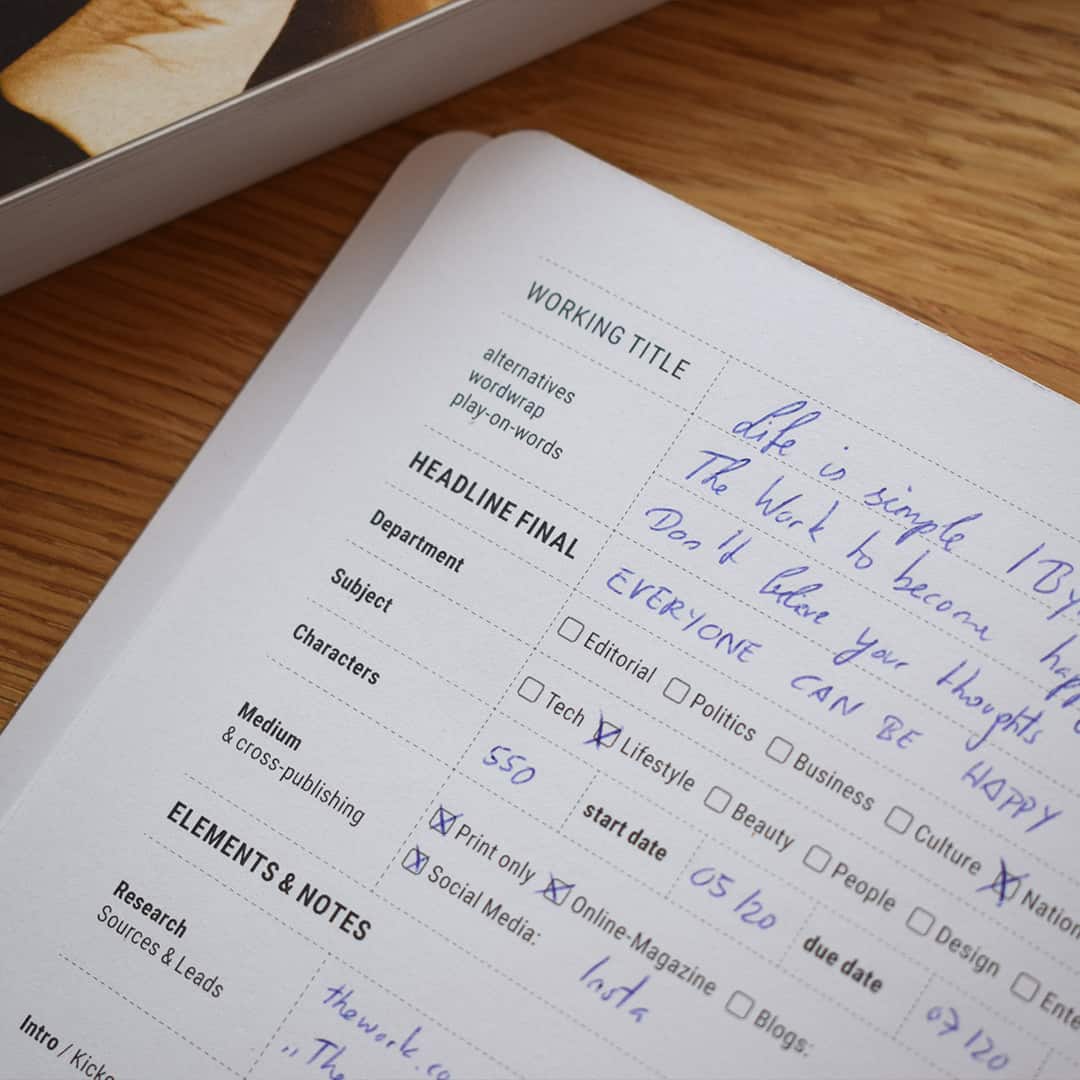 WORKING TITLE Life is simple / By
alternatives The Work to become
wordwrap Don't beleve your thoughts
play-on-words
HEADLINE FINAL EVERYONE CAN BE HAPPY
Department ☐ Editorial ☐ Politics ☐ Business ☐ Culture ☒
Subject ☐ Tech ☒ Lifestyle ☐ Beauty ☐ People ☐ Design ☐
Characters 550 start date 05/20 due date 07/20
Medium ☒ Print only ☒ Online-Magazine ☐ Blogs:
& cross-publishing ☒ Social Media: Insta
ELEMENTS & NOTES
Research thework.co
Sources & Leads „The
Intro /